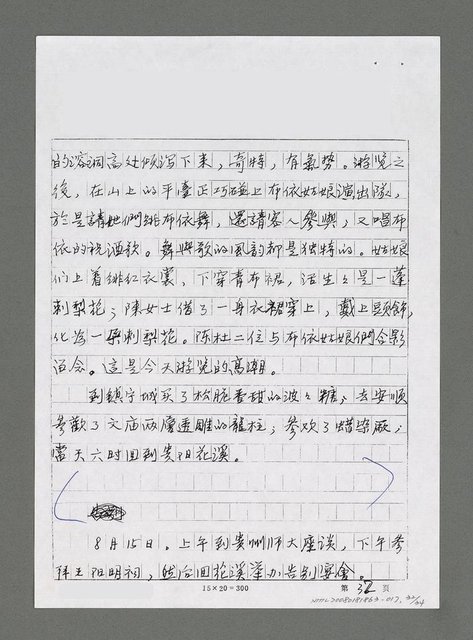 的溶洞高处倾泻下来，奇特，有氣势。游览之
後，在山上的平臺正巧碰上布依姑娘演出隊，
於是請她們跳布依舞，還請客人參與，又唱布
依的祝酒歌。舞與歌的風韵都是獨特的。姑娘
们上着绯红衣裳，下穿青布裙，活生々是一蓬
刺梨花；陳女士借了一身衣裙穿上，戴上頭飾，
化為一朵刺梨花。陈杜二位与布依姑娘們合影
留念。這是今天游览的高潮。
到鎮宁城买了松脆香甜的波々糖；去安順
参觀了文庙两層透雕的龍柱；参观了蜡染廠；
當天六时回到贵阳花溪。
8月15日。上午到贵州师大座谈，下午参
拜王阳明祠，然后回花溪举办告别宴會。
15×20=300
第32页
NMTL20080181863-017, 32/34